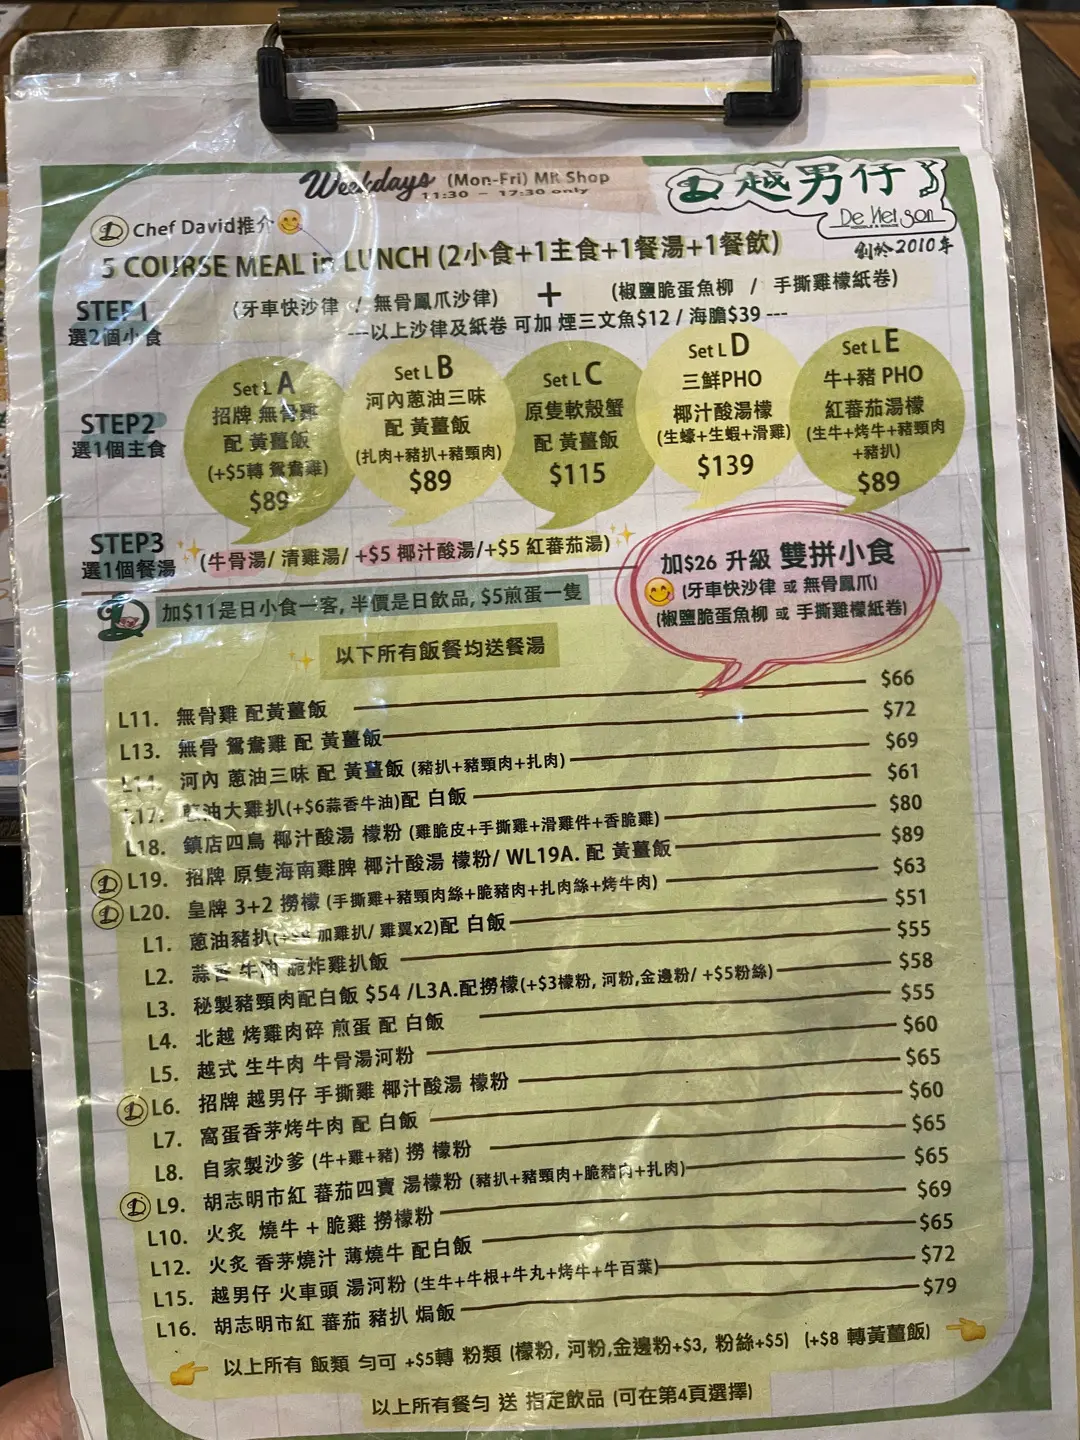 Weekdays (Mon-Fri) MR Shop
11:30 - 17:30 only
越男仔
De Viet Son
NOODLE & SNACK
創於2010年
Chef David推介
5 COURSE MEAL in LUNCH (2小食+1主食+1餐湯+1餐飲)
STEP1
選2個小食
(牙車快沙律 / 無骨鳳爪沙律) + (椒鹽脆蛋魚柳 / 手撕雞檬紙卷)
---以上沙律及紙卷 可加 煙三文魚$12 / 海膽$39 ---
STEP2
選1個主食
Set L A
招牌 無骨雞
配 黃薑飯
(+$5轉 鴛鴦雞)
$89
Set L B
河內蔥油三味
配 黃薑飯
(扎肉+豬扒+豬頸肉)
$89
Set L C
原隻軟殼蟹
配 黃薑飯
$115
Set L D
三鮮PHO
椰汁酸湯檬
(生蠔+生蝦+滑雞)
$139
Set L E
牛+豬 PHO
紅蕃茄湯檬
(生牛+烤牛+豬頸肉
+豬扒)
$89
STEP3
選1個餐湯
(牛骨湯/ 清雞湯/ +$5 椰汁酸湯/+$5 紅蕃茄湯)
加$26 升級 雙拼小食
(牙車快沙律 或 無骨鳳爪)
(椒鹽脆蛋魚柳 或 手撕雞檬紙卷)
加$11是日小食一客, 半價是日飲品, $5煎蛋一隻
以下所有飯餐均送餐湯
L11. 無骨雞 配黃薑飯 $66
L13. 無骨 鴛鴦雞 配 黃薑飯 $72
L14. 河內 蔥油三味 配 黃薑飯 (豬扒+豬頸肉+扎肉) $69
L17. 蔥油大雞扒(+$6蒜香牛油)配 白飯 $61
L18. 鎮店四鳥 椰汁酸湯 檬粉 (雞脆皮+手撕雞+滑雞件+香脆雞) $80
L19. 招牌 原隻海南雞脾 椰汁酸湯 檬粉/ WL19A. 配 黃薑飯 $89
L20. 皇牌 3+2 撈檬 (手撕雞+豬頸肉絲+脆豬肉+扎肉絲+烤牛肉) $63
L1. 蔥油豬扒( 加雞扒/ 雞翼x2)配 白飯 $51
L2. 蒜香 牛油 脆炸雞扒飯 $55
L3. 秘製豬頸肉配白飯 $54 /L3A.配撈檬(+$3檬粉, 河粉,金邊粉/ +$5粉絲) $58
L4. 北越 烤雞肉碎 煎蛋 配 白飯 $55
L5. 越式 生牛肉 牛骨湯河粉 $60
L6. 招牌 越男仔 手撕雞 椰汁酸湯 檬粉 $65
L7. 窩蛋香茅烤牛肉 配 白飯 $60
L8. 自家製沙爹 (牛+雞+豬) 撈 檬粉 $65
L9. 胡志明市紅 蕃茄四寶 湯檬粉 (豬扒+豬頸肉+脆豬肉+扎肉) $65
L10. 火炙 燒牛 + 脆雞 撈檬粉 $69
L12. 火炙 香茅燒汁 薄燒牛 配白飯 $65
L15. 越男仔 火車頭 湯河粉 (生牛+牛根+牛丸+烤牛+牛百葉) $72
L16. 胡志明市紅 蕃茄 豬扒 焗飯 $79
以上所有 飯類 勻可 +$5轉 粉類 (檬粉, 河粉,金邊粉+$3, 粉絲+$5) (+$8 轉黃薑飯)
以上所有餐勻 送 指定飲品 (可在第4頁選擇)